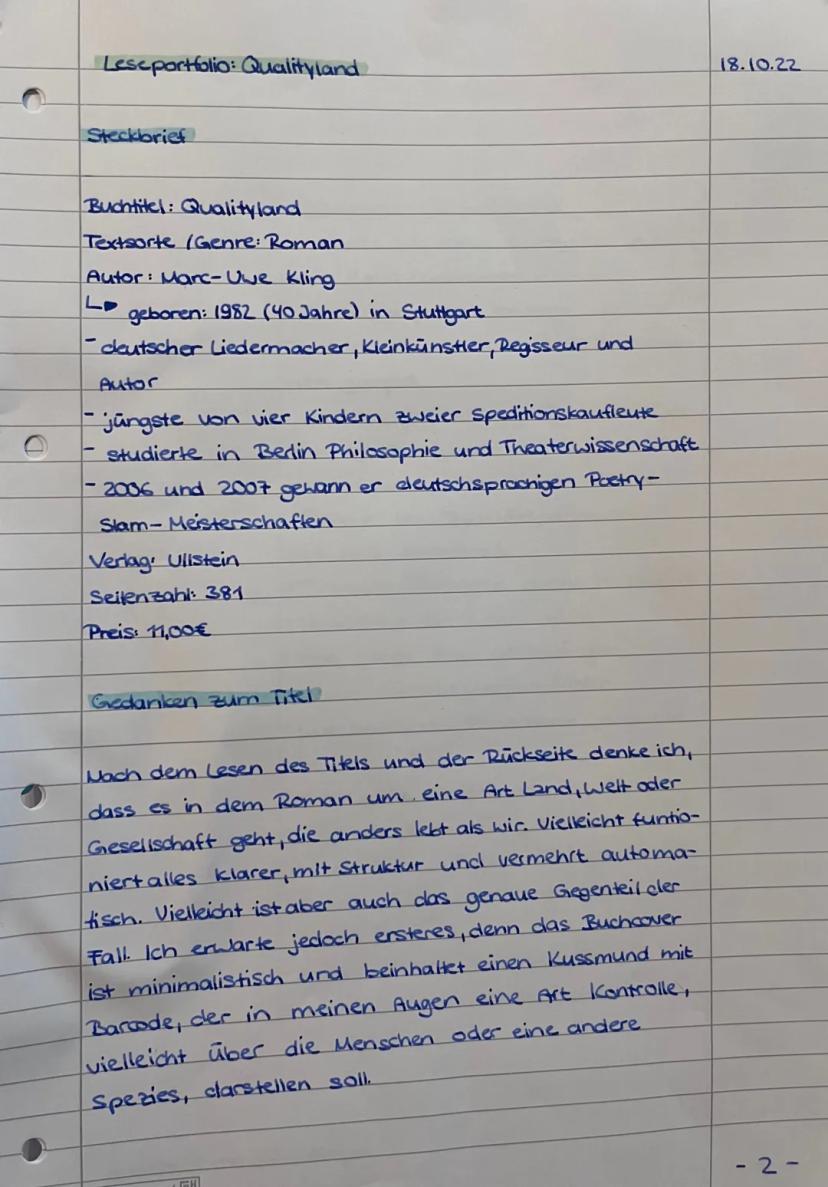 Leseportfolio: Qualityland 18.10.22
Steckbrief
Buchtitel: Qualityland
Textsorte / Genre: Roman
Autor: Marc-Uwe Kling
↳ geboren: 1982 (40 Jahre) in Stuttgart
- deutscher Liedermacher, Kleinkünstler, Regisseur und
Autor
- jüngste von vier Kindern zweier Speditionskaufleute
- studierte in Berlin Philosophie und Theaterwissenschaft
- 2006 und 2007 gewann er deutschsprachigen Poetry-
Slam-Meisterschaften
Verlag: Ullstein
Seitenzahl: 381
Preis: 11,00€
Gedanken zum Titel
Nach dem Lesen des Titels und der Rückseite denke ich,
dass es in dem Roman um eine Art Land, Welt oder
Gesellschaft geht, die anders lebt als wir. Vielleicht funtio-
niert alles klarer, mit Struktur und vermehrt automa-
tisch. Vielleicht ist aber auch das genaue Gegenteil der
Fall. Ich erwarte jedoch ersteres, denn das Buchcover
ist minimalistisch und beinhaltet einen Kussmund mit
Barcode, der in meinen Augen eine Art Kontrolle,
vielleicht über die Menschen oder eine andere
Spezies, darstellen soll.
- 2 -